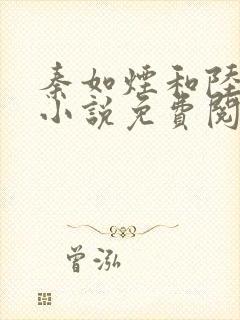 秦如煙和陸
小說免費閱
曾泓